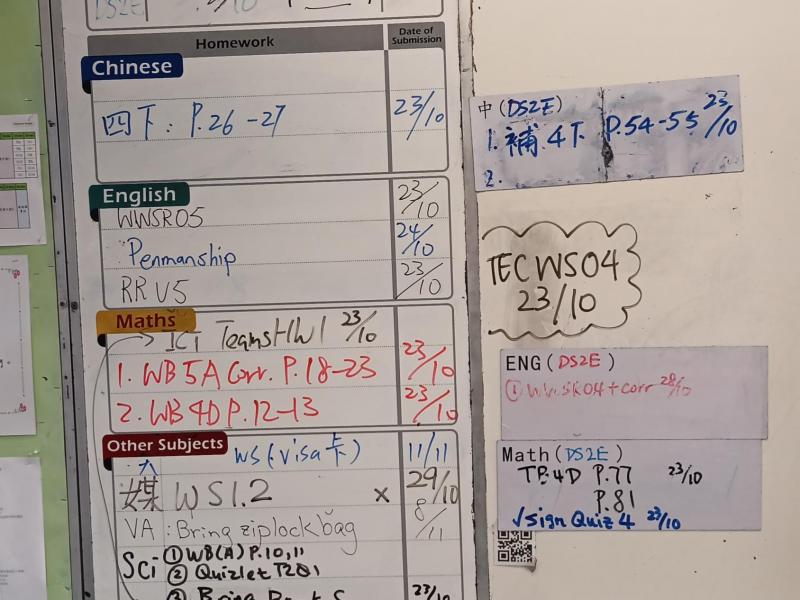 DS2E
Homework
Date of Submission
Chinese
四下: P.26-27 23/10
English
WWSR05 23/10
Penmanship 24/10
RR U5 23/10
Maths
ICT Teams HW1 23/10
1. WB 5A Corr. P.18-23 23/10
2. WB 4D P.12-13 23/10
Other Subjects
WS (visa卡) 11/11
媒 WS1.2 × 29/10
VA: Bring ziplock bag 8/11
Sci ① WB(A) P.10,11
② Quizlet T201
③ Bring 23/10
中 (DS2E)
1. 補. 4下 P.54-55 23/10
2.
TEC WS04
23/10
ENG (DS2E)
① WWSR04 + corr 28/10
Math (DS2E)
TB 4D P.77 23/10
P.81
√ Sign Quiz 4 23/10